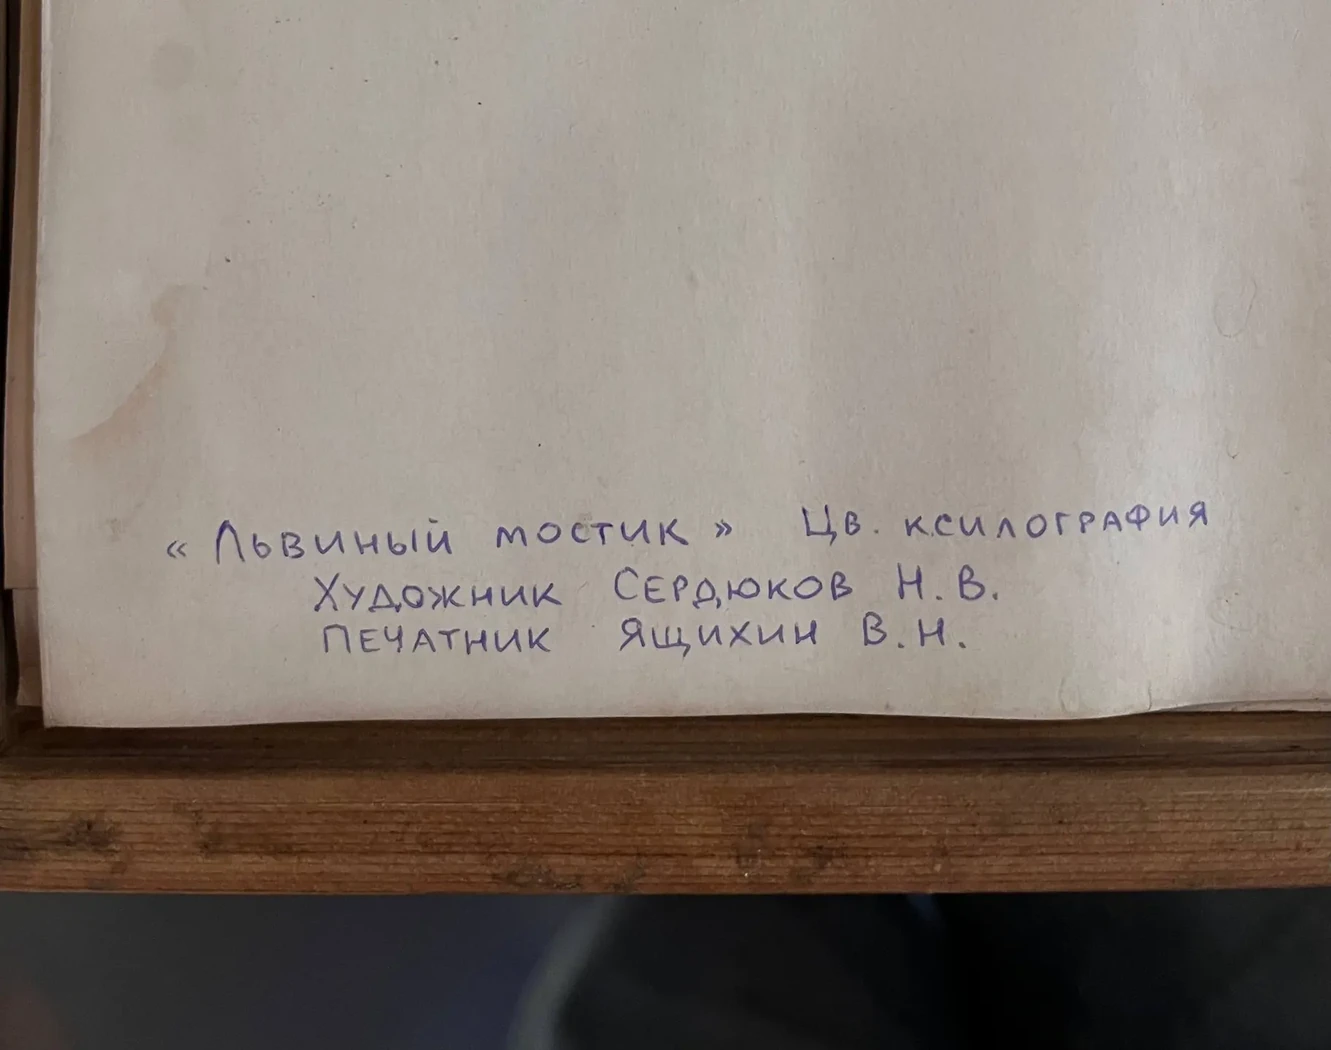 « Львиный мостик » Цв. ксилография
Художник Сердюков Н. В.
Печатник Ящихин В. Н.